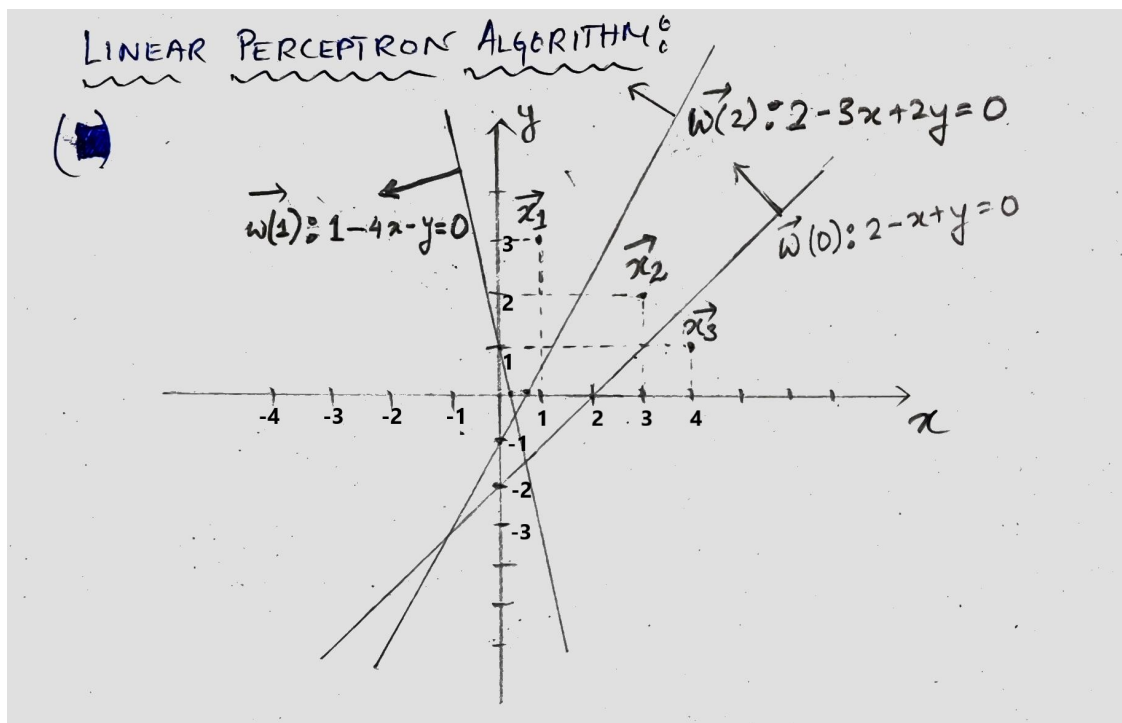 LINEAR PERCEPTRON ALGORITHM:
y
w(2): 2-3x+2y=0
w(1): 1-4x-y=0
x1
w(0): 2-x+y=0
3
x2
2
x3
1
-4 -3 -2 -1 1 2 3 4
x
-1
-2
-3